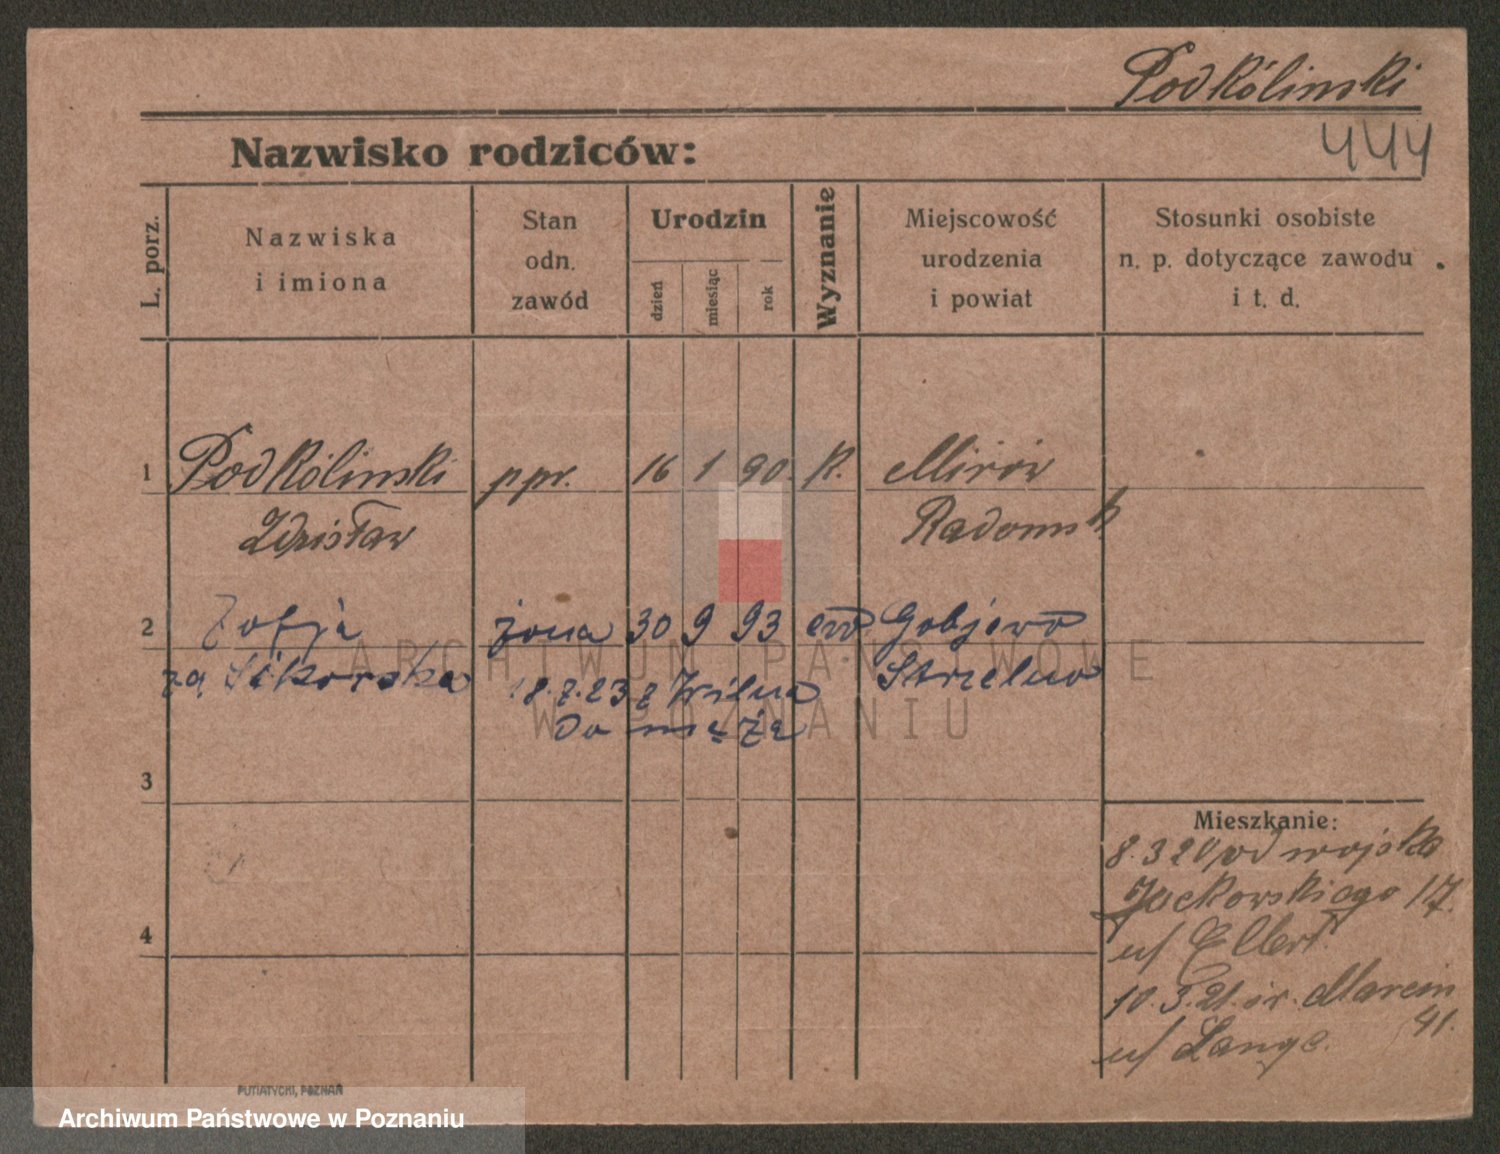 Podkóliński
444
Nazwisko rodziców:
L. porz.
Nazwiska
i imiona
Stan
odn.
zawód
Urodzin
dzień
miesiąc
rok
Wyznanie
Miejscowość
urodzenia
i powiat
Stosunki osobiste
n. p. dotyczące zawodu
i t. d.
1 Podkóliński ppr. 16 1 90. k. Mirów
Zdzisław Radomsk
2 Zofja żona 30 9 93 ew
Sikorska Strzelno
18.7.23 z Wilna
Do męża
3
4
Mieszkanie:
8.3 20 od wojska
Jackowskiego 17.
u/ Ellert
10.3.21. św. Marcin
41.
u/ Lange.
ARCHIWUM PAŃSTWOWE
W POZNANIU
PUTIATYCKI, POZNAŃ
Archiwum Państwowe w Poznaniu